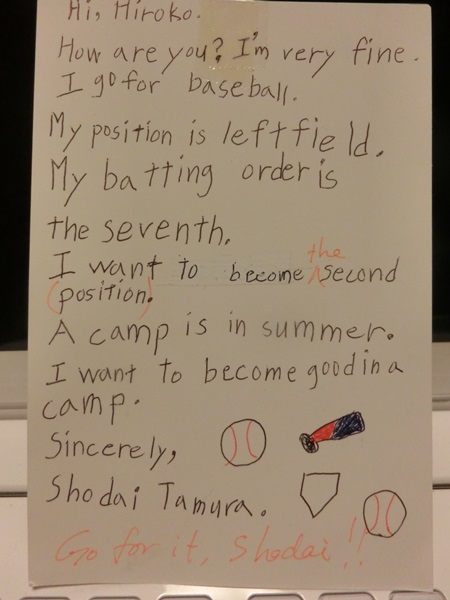 Hi, Hiroko.
How are you? I'm very fine.
I go for baseball.
My position is left field.
My batting order is
the seventh.
I want to become the second
(position).
A camp is in summer.
I want to become good in a
camp.
Sincerely,
Shodai Tamura.
Go for it, Shodai!!